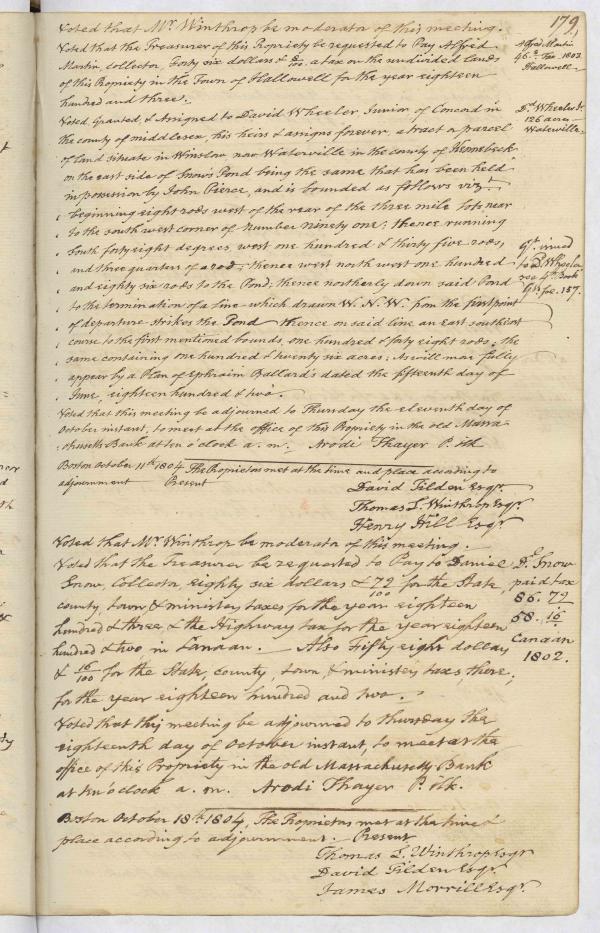 179.
Voted that Mr. Winthrop be moderator of this meeting.
Voted that the Treasurer of this Propriety be requested to Pay Alfred
Martin, collector, Forty six dollars & 8/100. a tax on the undivided lands
of this Propriety in the Town of Hallowell for the year eighteen
hundred and three.
Alfred Martin
46. 8 Tax. 1803
Hallowell
Voted, Granted, & Assigned to David Wheeler, Junior, of Concord in
the county of middlesex, his heirs & assigns forever, a tract or parcel
of land situate in Winslow, now Waterville in the county of Kennebeck
on the east side of Snows Pond being the same that has been held
in possession by John Pierce, and is bounded as follows vizt.
beginning eight rods west of the rear of the three mile lots near
to the south west corner of number ninety one; thence running
South forty eight degrees, west one hundred & thirty five rods,
and three quarters of a rod; thence west north west one hundred
and eighty six rods to the Pond; thence northerly down said Pond
to the termination of a line which drawn W. N. W. from the first point
of departure strikes the Pond thence on said line an East southeast
course to the first mentioned bounds, one hundred & forty eight rods, the
same containing one hundred & twenty six acres; As will more fully
appear by a Plan of Ephraim Ballard's dated the fifteenth day of
June, eighteen hundred & two.
Dd. Wheeler Jr.
126 acres
Waterville
Gt. issued
to D. Wheeler
see 4th Book
Gts. fol. 157.
Voted that this meeting be adjourned to Thursday the eleventh day of
October instant, to meet at the office of this Propriety in the old Massa-
chusetts Bank at ten o'clock a. m. Arodi Thayer P. Clk
Boston October 11th 1804. The Proprietors met at the time and place according to
adjournment Present
David Tilden Esqr.
Thomas L. Winthrop Esqr.
Henry Hill Esqr.
Voted that Mr. Winthrop be moderator of this meeting.
Voted that the Treasurer be requested to Pay to Daniel
Snow, Collector, eighty six dollars & 72/100 for the State,
county, town, & minister taxes for the year eighteen
hundred & three & the Highway tax for the year eighteen
hundred & two in Canaan. Also Fifty eight dollars
& 16/100 for the State, county, town, & minister taxes, there,
for the year eighteen hundred and two.
Dl. Snow
paid tax
86. 72
58. 16
Canaan
1802.
Voted that this meeting be adjourned to thursday the
eighteenth day of October instant, to meet at the
office of this Propriety in the old Massachusetts Bank
at ten o'clock a. m. Arodi Thayer P. Clk.
Boston October 18th 1804. The Proprietors met at the time &
place according to adjournment. Present
Thomas L. Winthrop Esqr
David Tilden Esqr.
James Morrill Esqr.